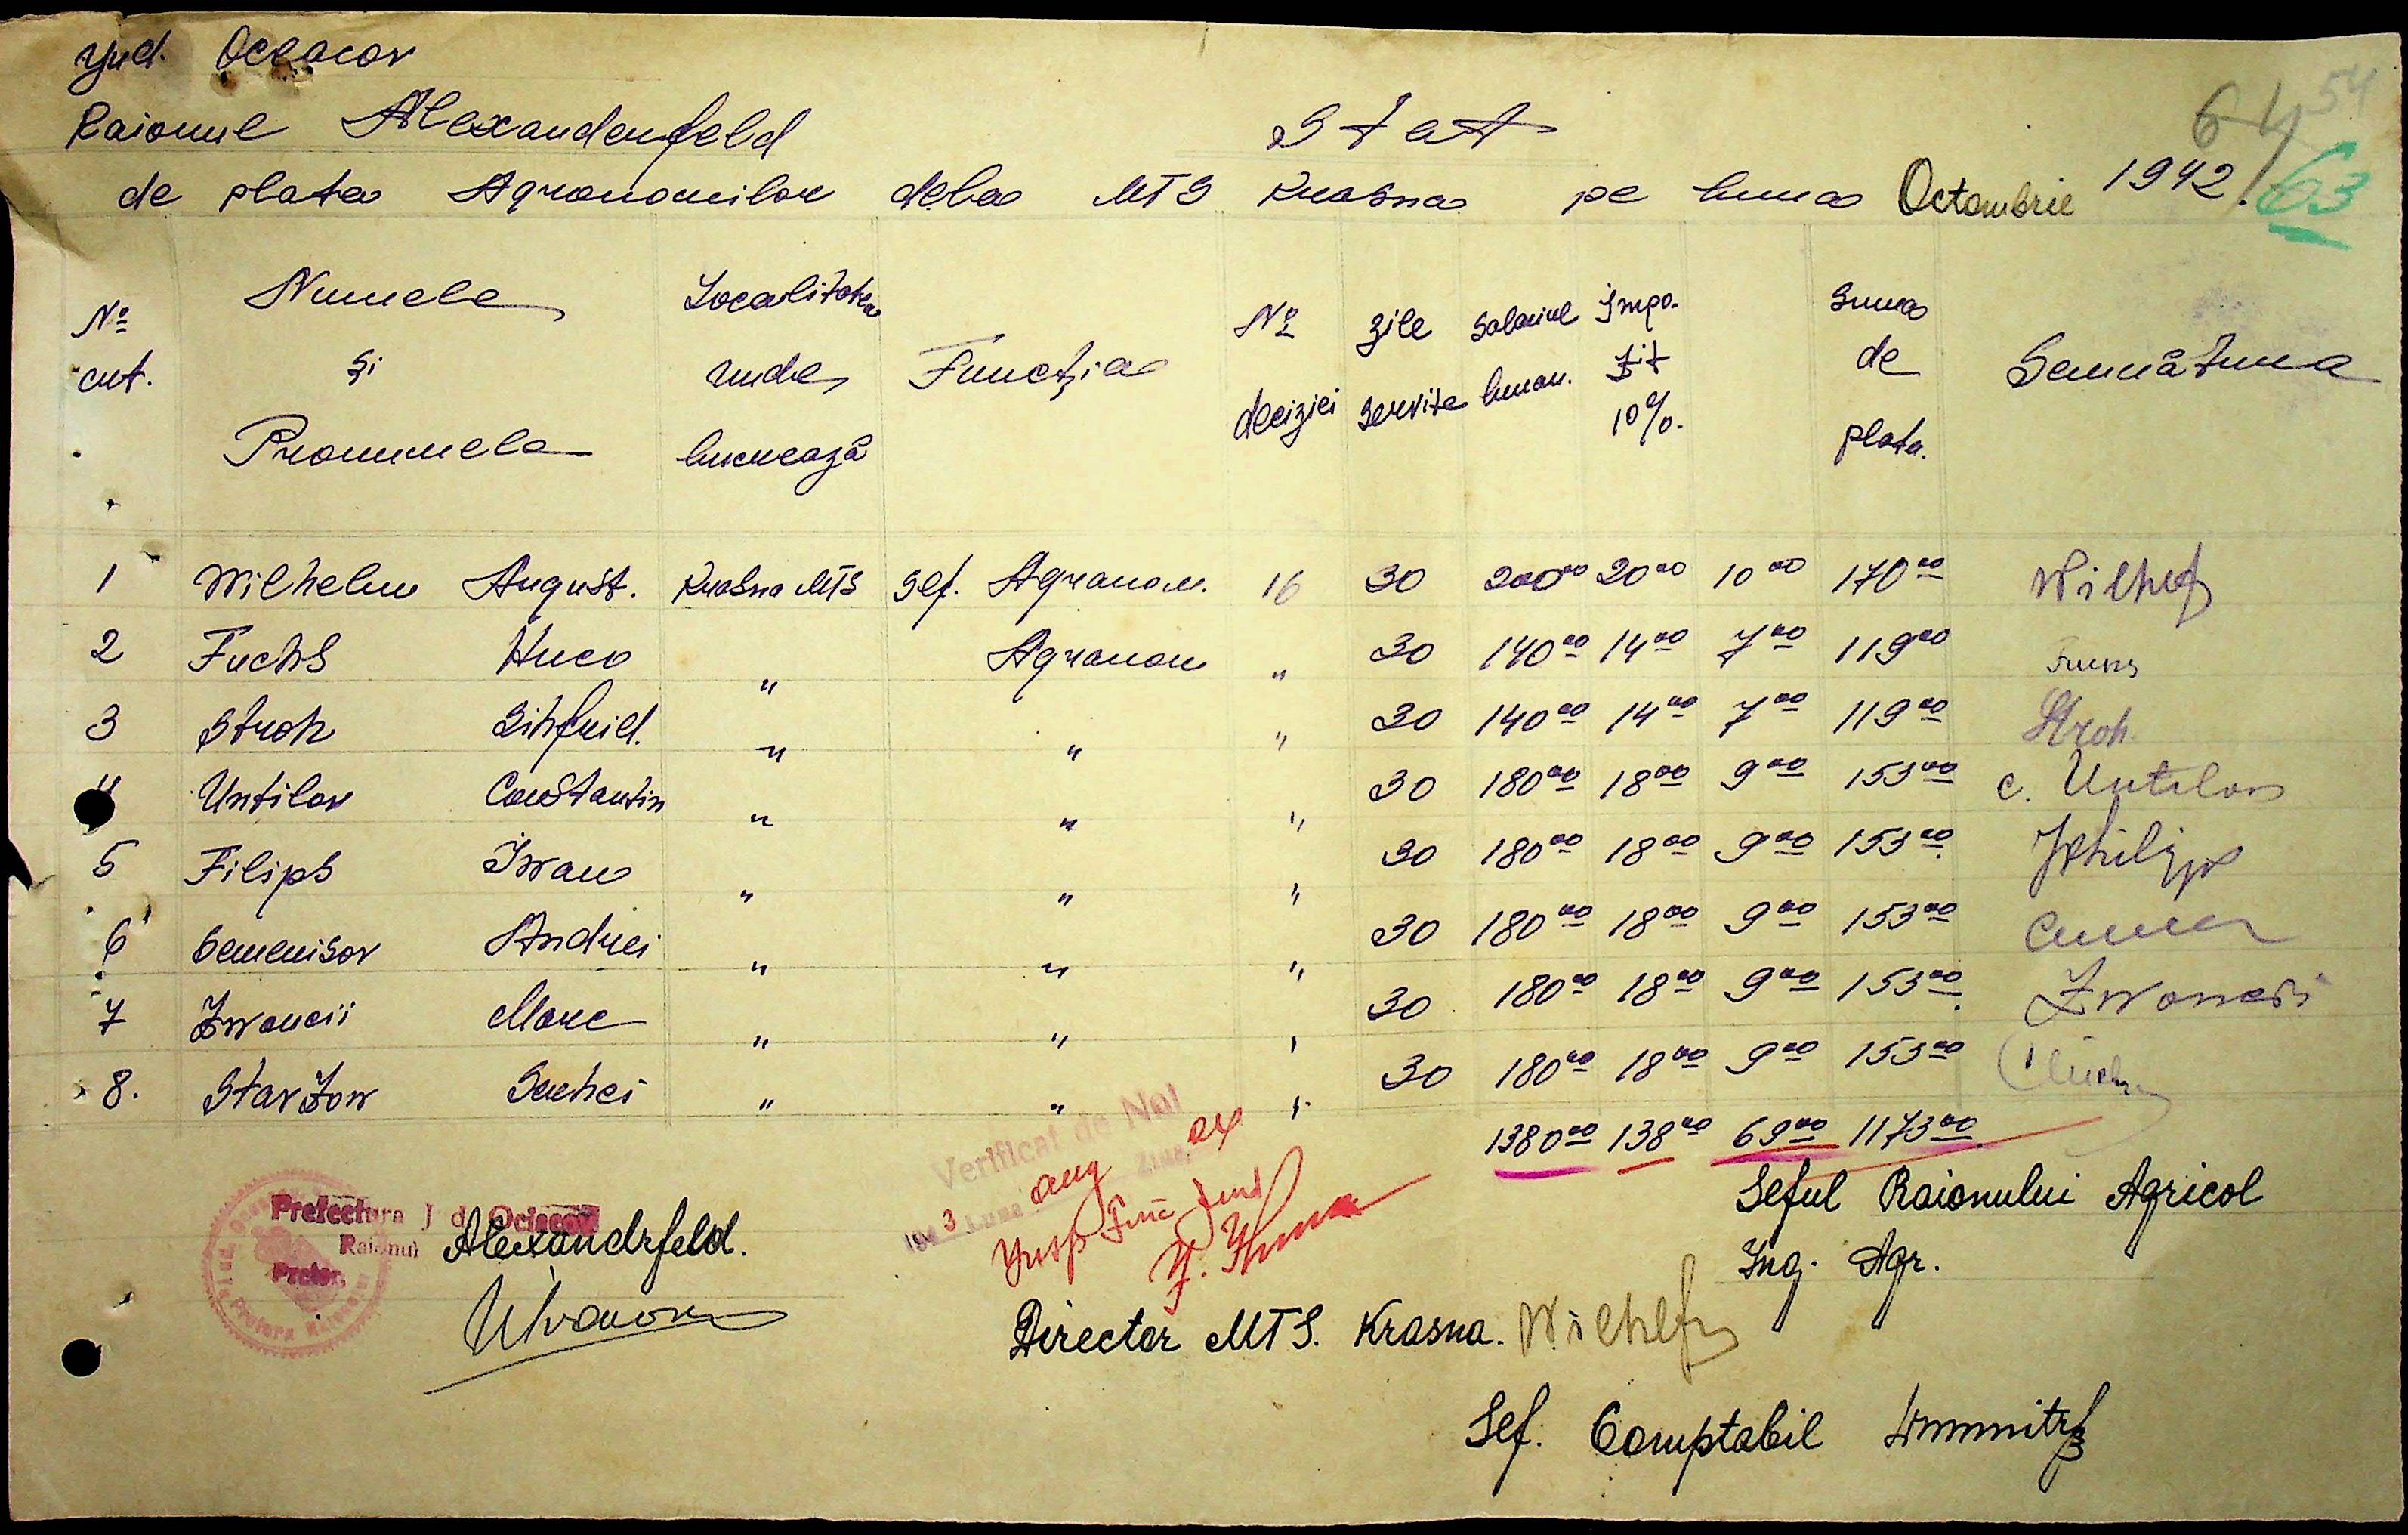 Jud. Oceacov
Raionul Alexandenfeld Stat 64 54
de plata Agronomilor dela MTS Krasna pe luna Octombrie 1942. 63
Nº crt. Numele și Pronumele Localitatea unde lucrează Funcția Nº deciziei Zile servite Salariul lunar. Impozit 10% Suma de plata. Semnătura
1 Wilhelm August. Krasna MTS Sef. Agronom. 16 30 200 00 20 00 10 00 170 00 Wilhelm
2 Fuchs Huco " Agronom " 30 140 00 14 00 7 00 119 00 Fuchs
3 Stroh Sihfrid. " " " 30 140 00 14 00 7 00 119 00 Stroh
4 Untilov Constantin " " " 30 180 00 18 00 9 00 153 00 C. Untilov
5 Filips Iwan " " " 30 180 00 18 00 9 00 153 00 Philipp
6 Semenisov Andrei " " " 30 180 00 18 00 9 00 153 00
7 Zwoncii Marc " " " 30 180 00 18 00 9 00 153 00 Zwoncii
8. Starzow Serhei " " " 30 180 00 18 00 9 00 153 00
1380 00 138 00 69 00 1173 00
Verificat de Noi
1943 Luna aug Ziua
Prefectura Jud. Ociacov
Raionul Alexandrfeld.
Pretor
Seful Raionului Agricol
Ing. Agr.
Director MTS. Krasna. Wilhelm
Sef. Comptabil